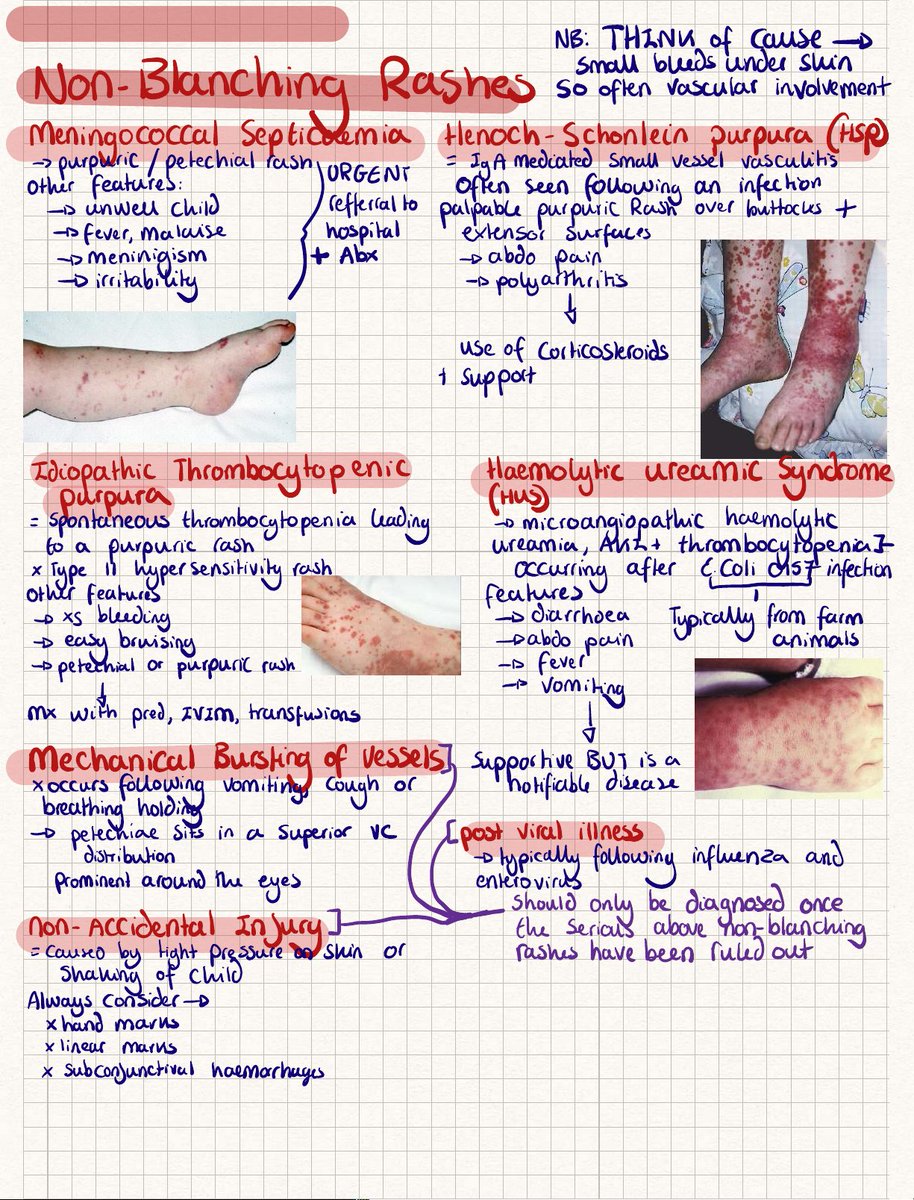 Non-Blanching Rashes
NB: THINK of cause →
small bleeds under skin
so often vascular involvement
Meningococcal Septicaemia
→ purpuric / petechial rash
Other features:
→ unwell child
→ fever, malaise
→ meninigism
→ irritability
URGENT
refferal to
hospital
+ Abx
Henoch-Schonlein purpura (HSP)
= IgA mediated small vessel vasculitis
Often seen following an infection
palpable purpuric Rash over buttocks +
extensor surfaces
→ abdo pain
→ polyarthritis
↓
use of corticosteroids
+ support
Idiopathic Thrombocytopenic
purpura
= Spontaneous thrombocytopenia leading
to a purpuric rash
x Type II hypersensitivity rash
Other features
→ xs bleeding
→ easy bruising
→ petechial or purpuric rash
↓
mx with pred, IVIM, transfusions
Haemolytic ureamic Syndrome
(HUS)
→ microangiopathic haemolytic
ureamia, AKI + thrombocytopenia]-
occurring after E.Coli O157 infection
features
→ diarrhoea
→ abdo pain
→ fever
→ vomiting
Typically from farm
animals
↓
Supportive BUT is a
notifiable disease
Mechanical Bursting of vessels
x occurs following vomiting, cough or
breathing holding
→ petechiae sits in a superior VC
distribution
Prominent around the eyes
post viral illness
→ typically following influenza and
enterovirus
should only be diagnosed once
the serious above non-blanching
rashes have been ruled out
non-Accidental Injury
= caused by tight pressure on skin or
shaking of child
Always consider →
x hand marks
x linear marks
x subconjunctival haemorrhages